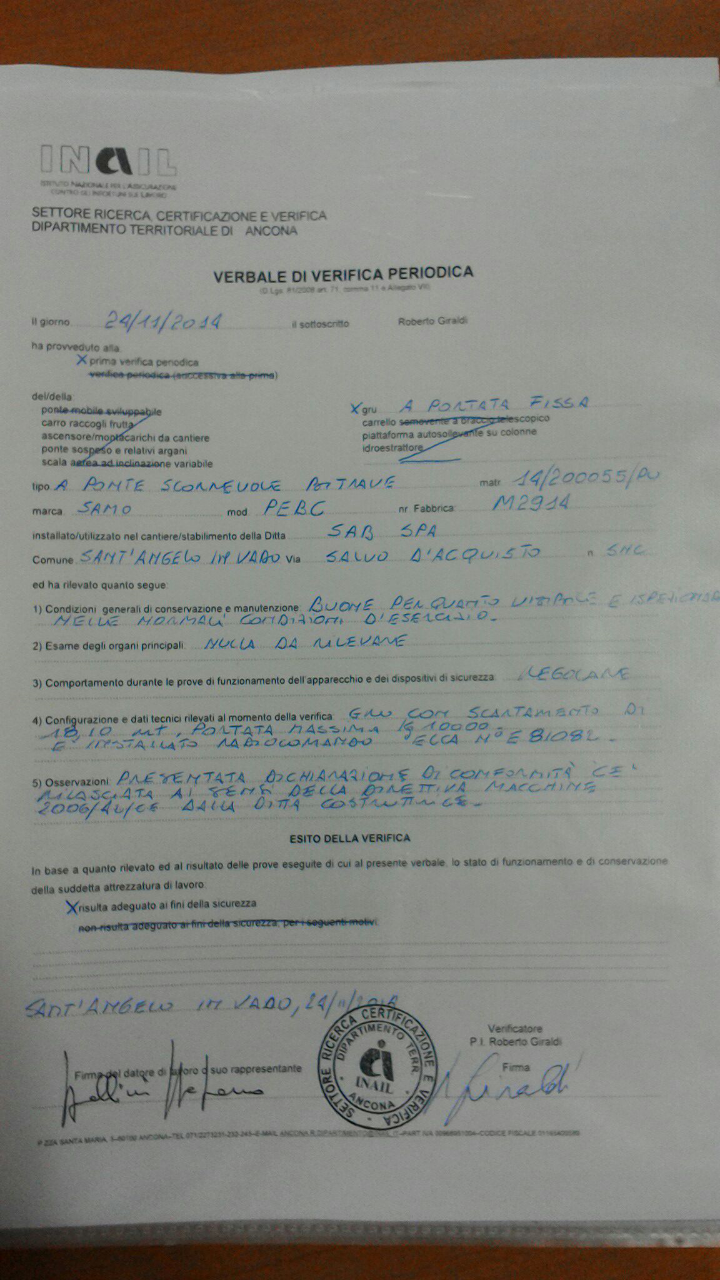 INAIL
ISTITUTO NAZIONALE PER L'ASSICURAZIONE
CONTRO GLI INFORTUNI SUL LAVORO
SETTORE RICERCA, CERTIFICAZIONE E VERIFICA
DIPARTIMENTO TERRITORIALE DI ANCONA
VERBALE DI VERIFICA PERIODICA
(D.Lgs. 81/2008 art. 71, comma 11 e Allegato VII)
Il giorno 24/11/2014 il sottoscritto Roberto Giraldi
ha provveduto alla:
X prima verifica periodica
verifica periodica (successiva alla prima)
del/della
ponte mobile sviluppabile X gru A PORTATA FISSA
carro raccogli frutta carrello semovente a braccio telescopico
ascensore/montacarichi da cantiere piattaforma autosollevante su colonne
ponte sospeso e relativi argani idroestrattore
scala aerea ad inclinazione variabile
tipo A PONTE SCORREVOLE BITRAVE matr. 14/200055/PU
marca SAMO mod. PEBC nr. Fabbrica: M2914
installato/utilizzato nel cantiere/stabilimento della Ditta SAB SPA
Comune SANT'ANGELO IN VADO Via SALVO D'ACQUISTO n. SNC
ed ha rilevato quanto segue:
1) Condizioni generali di conservazione e manutenzione: BUONE PER QUANTO VISIBILE E
NELLE NORMALI CONDIZIONI D'ESERCIZIO.
2) Esame degli organi principali: NULLA DA RILEVARE
3) Comportamento durante le prove di funzionamento dell'apparecchio e dei dispositivi di sicurezza: REGOLARE
4) Configurazione e dati tecnici rilevati al momento della verifica: GRU CON SCARTAMENTO DI
18,10 mt, PORTATA MASSIMA Kg 10000.
E' INSTALLATO RADIOCOMANDO ELCA N° E 81082.
5) Osservazioni: PRESENTATA DICHIARAZIONE DI CONFORMITÀ CE
RILASCIATA AI SENSI DELLA DIRETTIVA MACCHINE
2006/42/CE DALLA DITTA COSTRUTTRICE.
ESITO DELLA VERIFICA
In base a quanto rilevato ed al risultato delle prove eseguite di cui al presente verbale, lo stato di funzionamento e di conservazione
della suddetta attrezzatura di lavoro:
X risulta adeguato ai fini della sicurezza
non risulta adeguato ai fini della sicurezza, per i seguenti motivi:
SANT'ANGELO IN VADO, 24/11/2014
Verificatore
P.I. Roberto Giraldi
Firma del datore di lavoro o suo rappresentante Firma
Giraldi
SETTORE RICERCA CERTIFICAZIONE E VERIFICA
DIPARTIMENTO TERR.
INAIL
ANCONA
P.ZZA SANTA MARIA, 3–60100 ANCONA–TEL